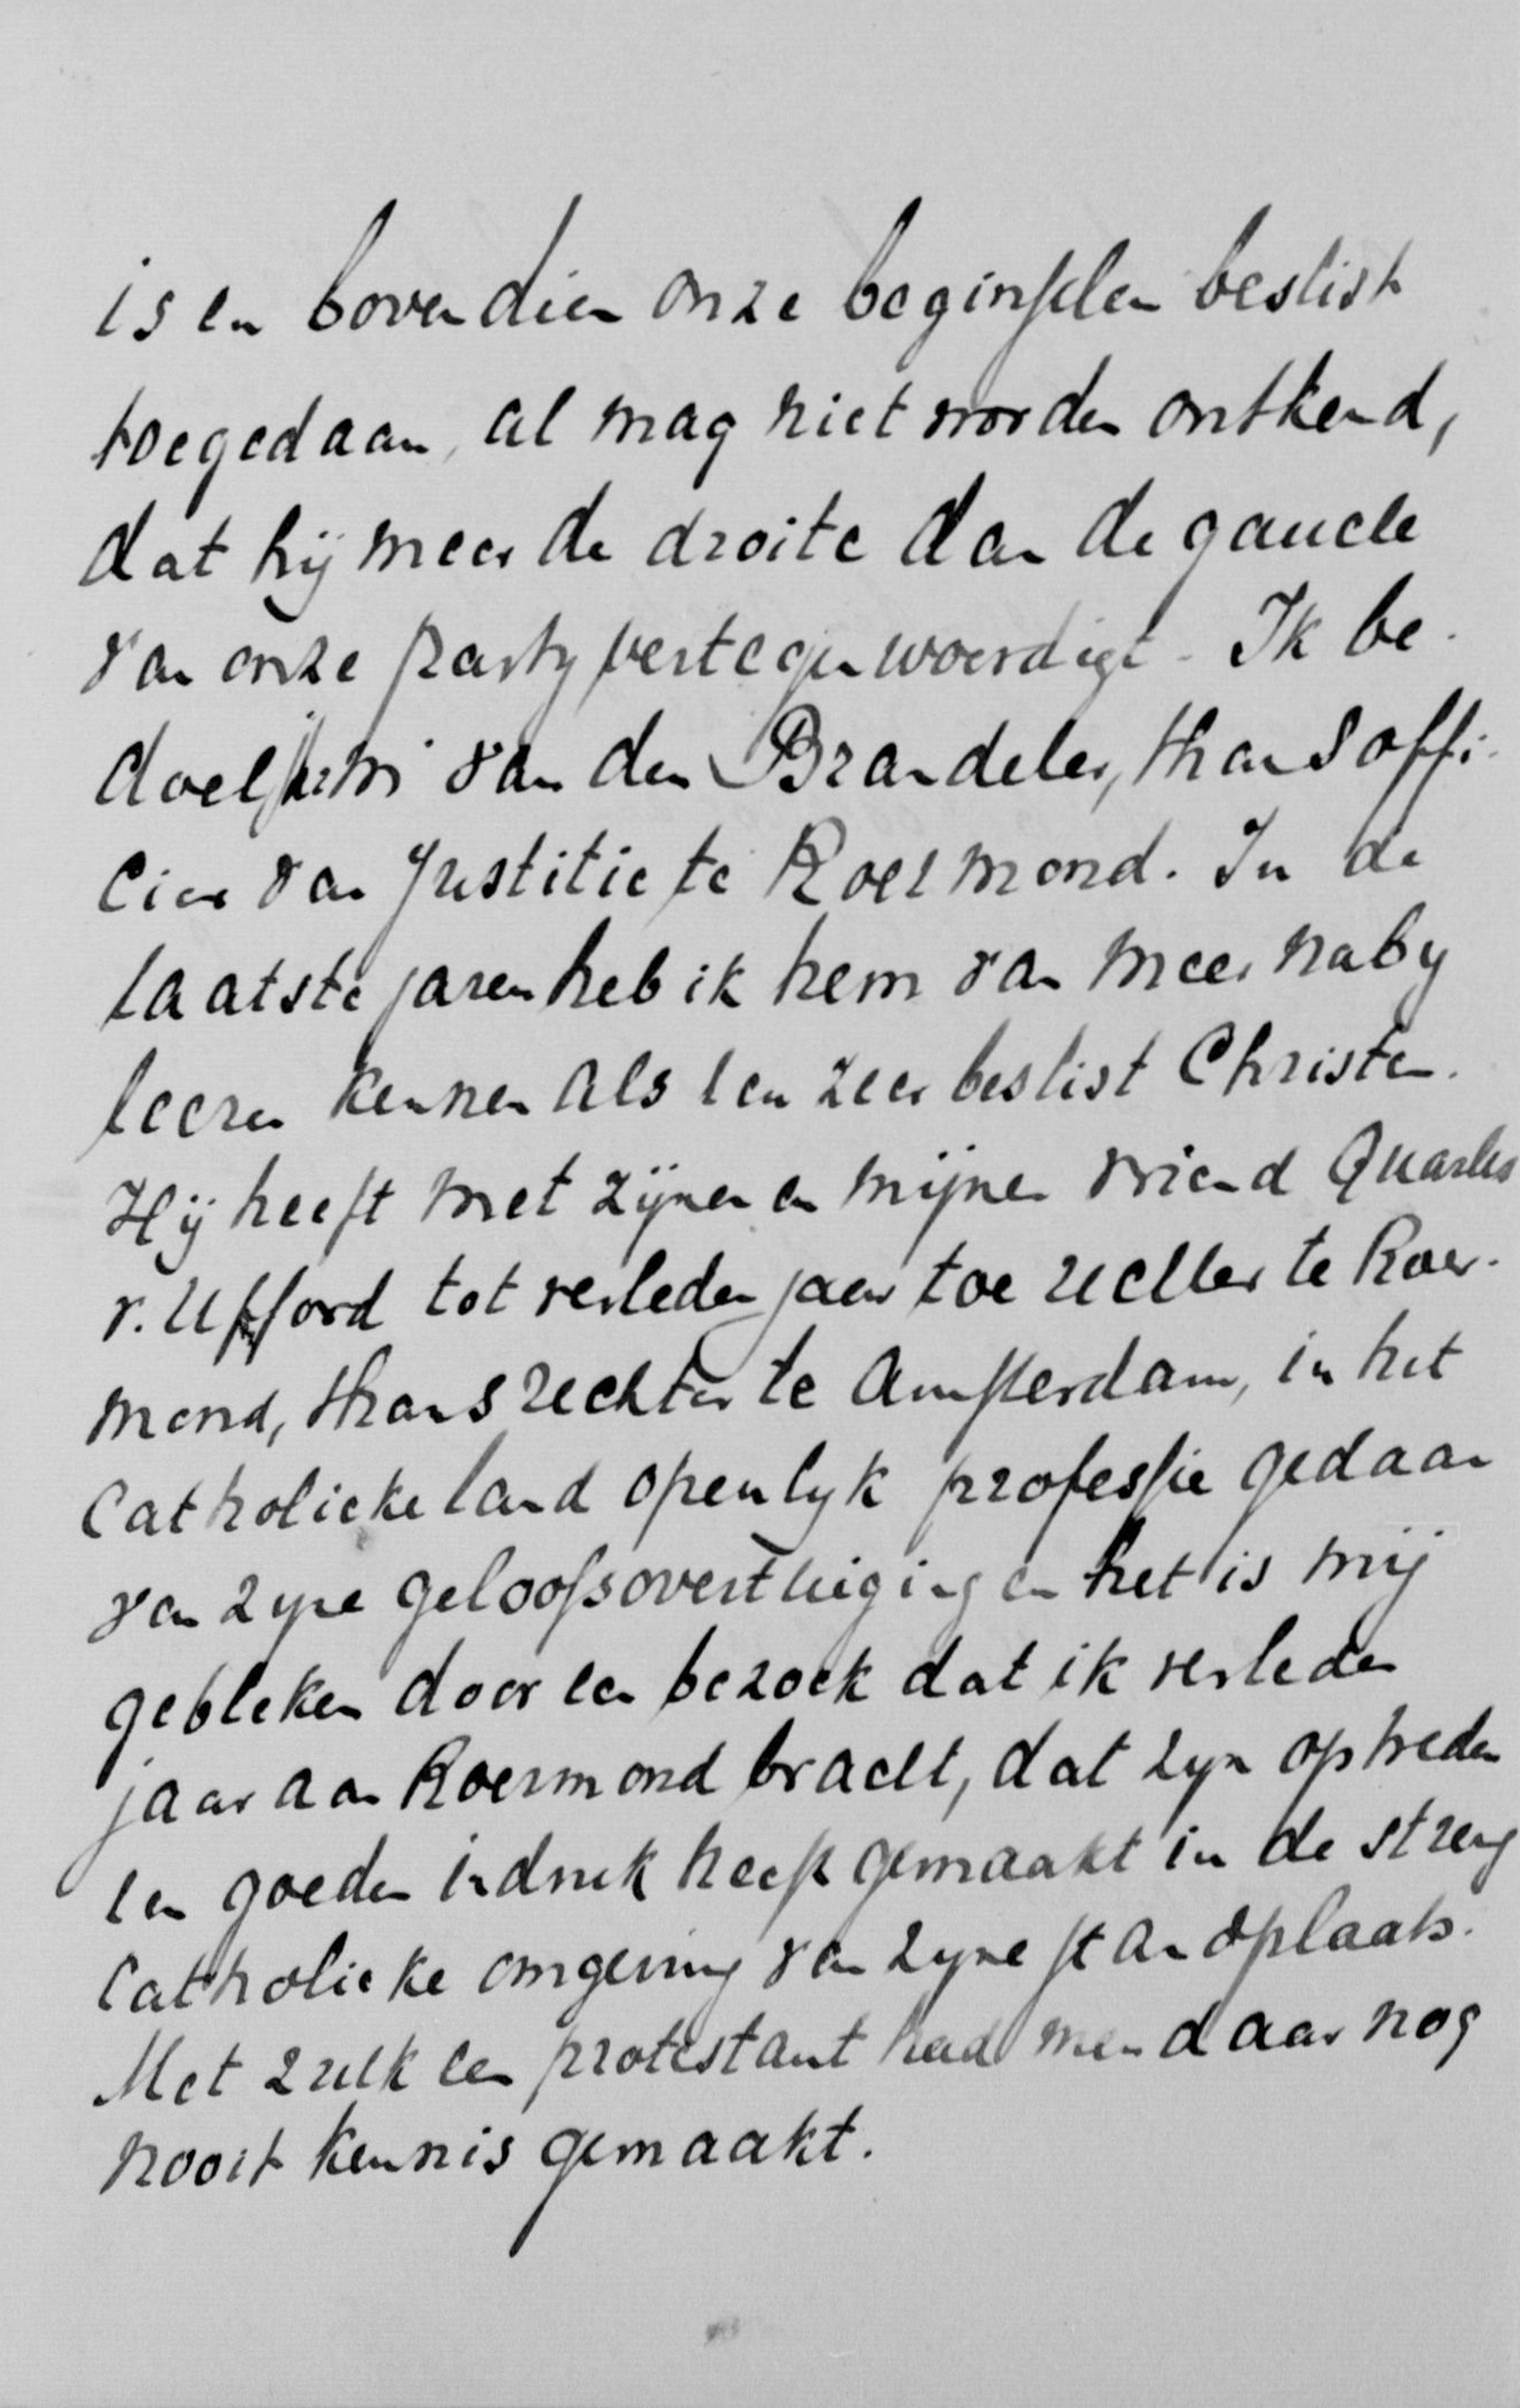 is en bovendien onze beginselen beslist
toegedaan, al mag niet worden ontkend,
dat hij meer de droite dan de gauche
van onze party vertegenwoordigt. Ik be-
doel van den Brandeler, thans offi-
cier van Justitie te Roermond. In de
laatste jaren heb ik hem van meer naby
leeren kennen als een zeer beslist Christen.
Hij heeft met zijnen en mijnen vriend Quarles
v. Ufford tot verleden jaar toe rechter te Roer-
mond, thans rechter te Amsterdam, in het
Catholieke land openlyk professie gedaan
van zyne geloofsovertuiging en het is mij
gebleken door een bezoek dat ik verleden
jaar aan Roermond bracht, dat zyn optreden
een goeden indruk heeft gemaakt in de streng
Catholieke omgeving van zyne standplaats.
Met zulk een protestant had men daar nog
nooit kennis gemaakt.